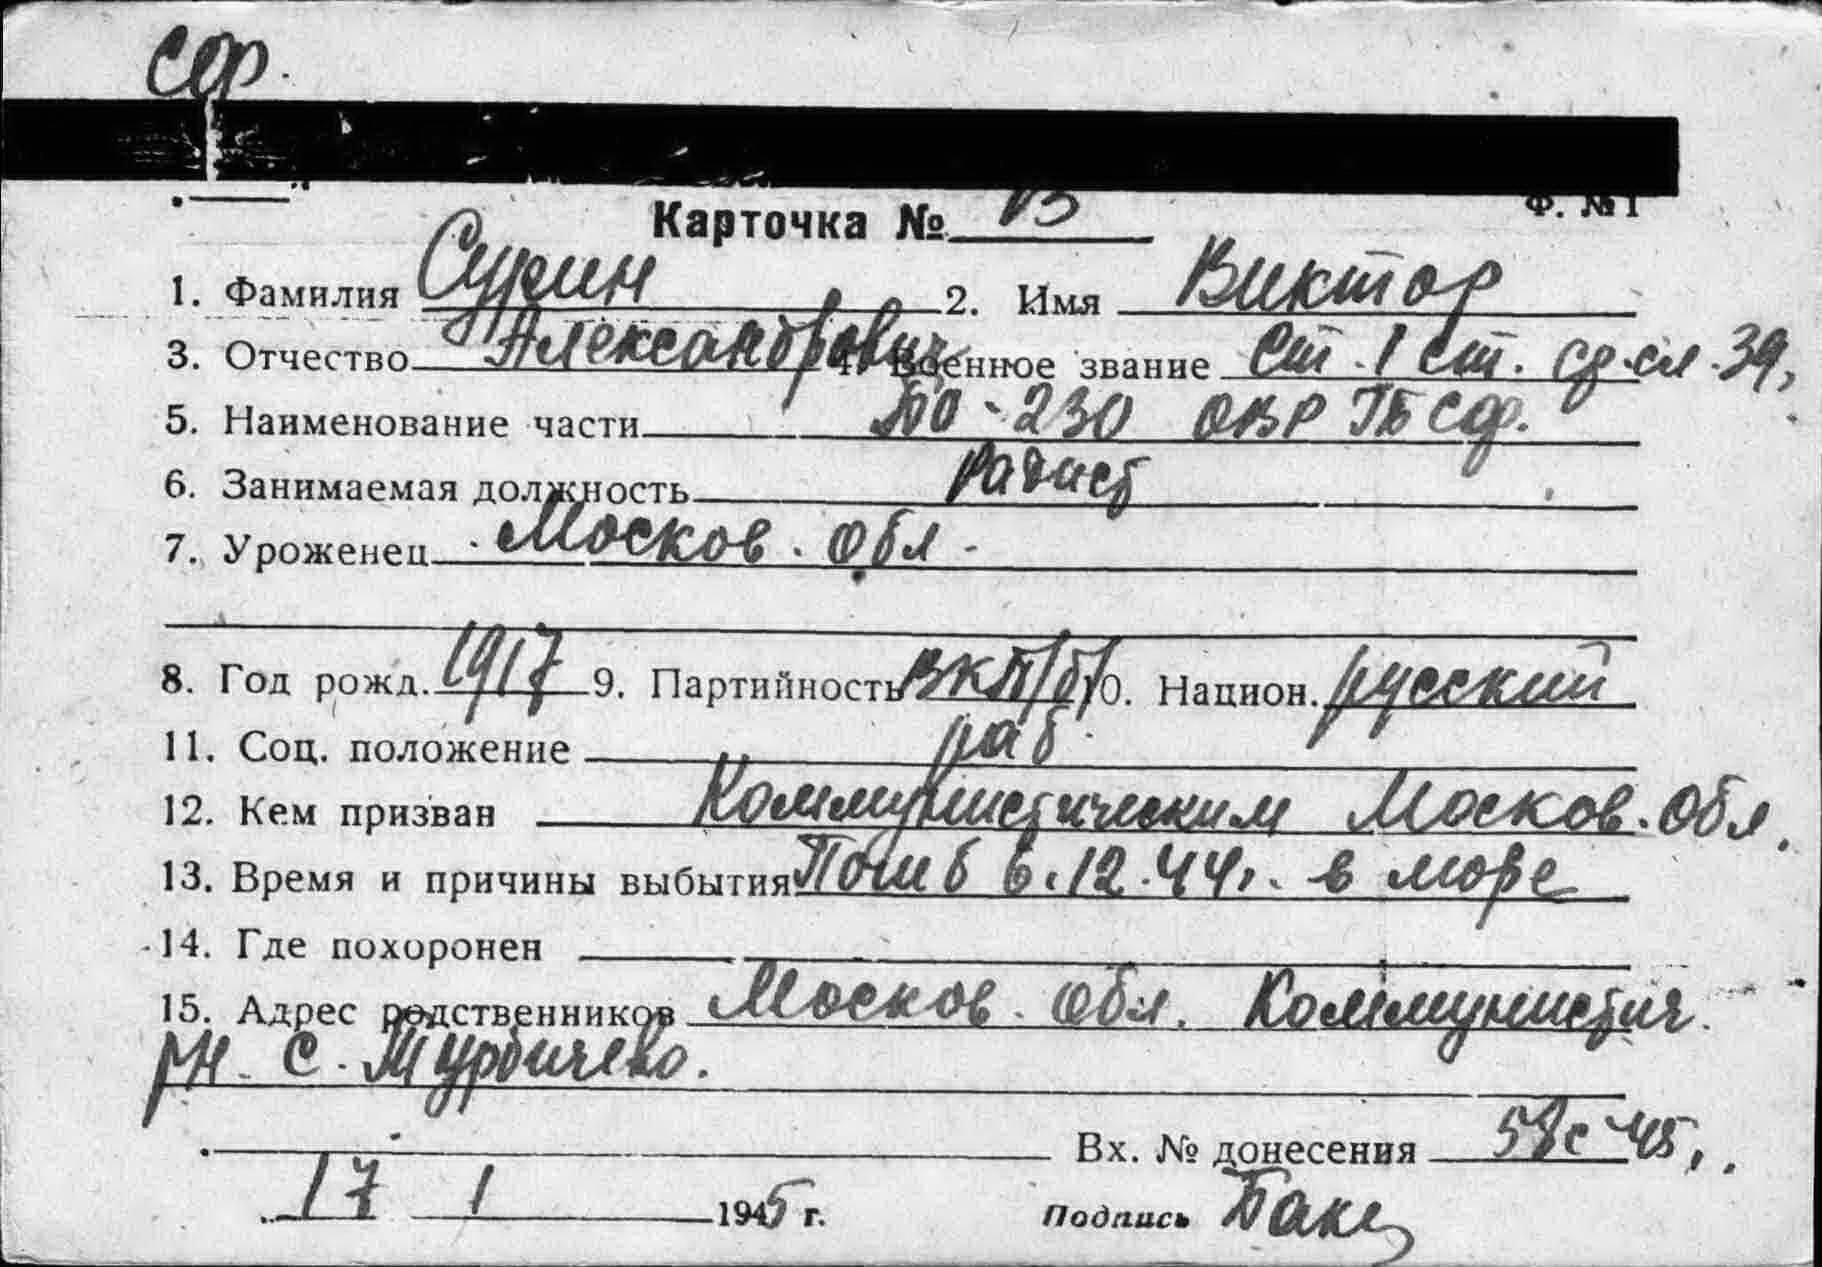 СФ.
Ф. № 1
Карточка №
1. Фамилия Сурин 2. Имя Виктор
3. Отчество Александрович 4. Военное звание Ст. 1 ст. ср. сл. 39,
5. Наименование части БО-230 ОВР ГБ СФ.
6. Занимаемая должность радист
7. Уроженец Москов. обл.
8. Год рожд. 1917 9. Партийность ВКП/б/ 10. Национ. русский
11. Соц. положение раб.
12. Кем призван Коммунистическим Москов. обл.
13. Время и причины выбытия Погиб 6.12.44 г. в море
14. Где похоронен
15. Адрес родственников Москов. обл. Коммунистич.
рн. с.
Вх. № донесения 58с 45,
17 1 1945 г. Подпись